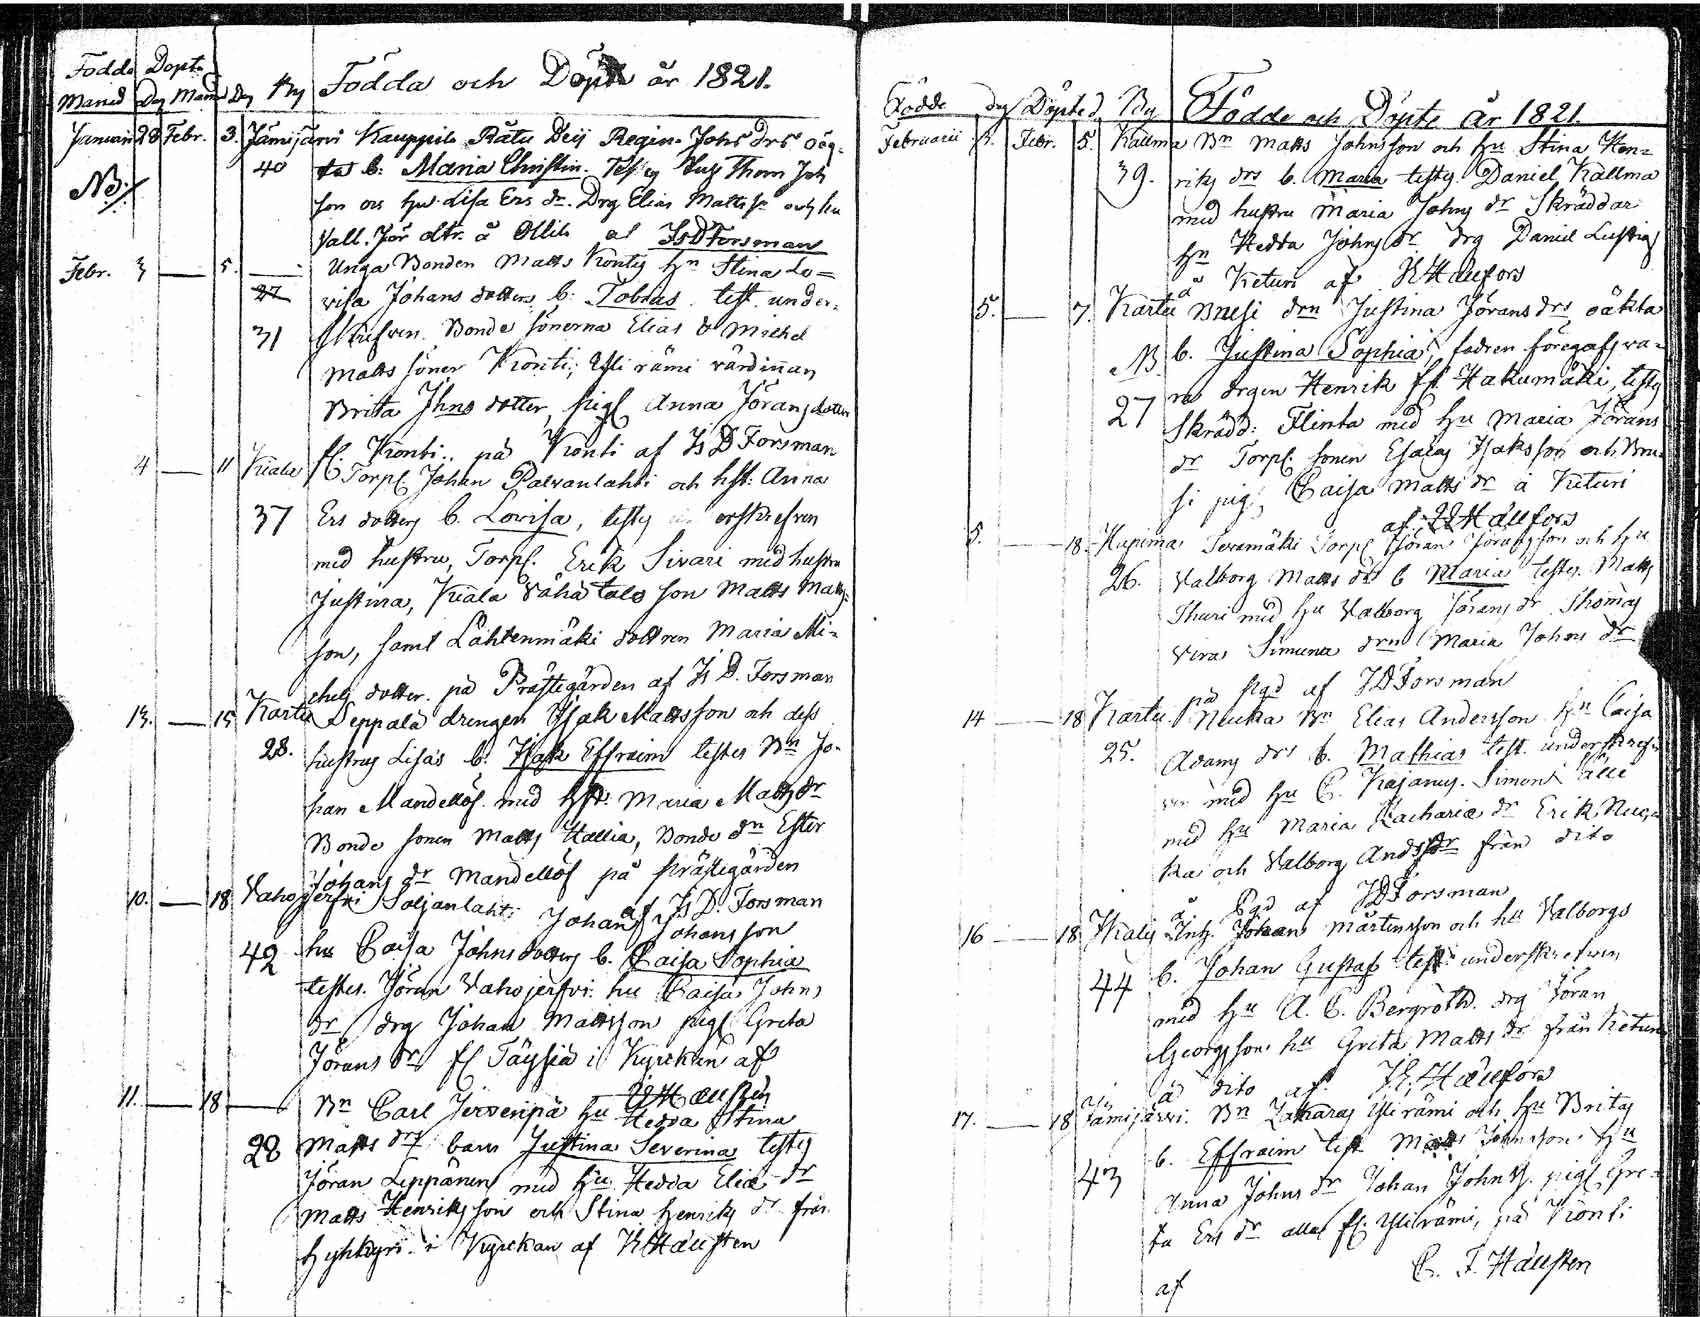 Födde Döpte
Månad Dag Månad Dag By Födda och Döpte år 1821.
Januarii 28 Febr. 3. Jämijärvi Kauppila Rätu Deij Regina Johs drs oäg-
NB. 40 tas b. Maria Christin. Thom Joh
son och hu Lisa Ers dr. Drg Elias Matts och hu
Vall. Jör dtr. å Ollila af Is D Forsman
Febr. 3 — 5. — Unga Bonden Matts Kontis hn Stina Lo=
27 visa Johans dotters b: Tobias. test. under-
31 skrefven. Bonde sönerna Elias & Michel
Matts söner Konti; Yli rämi värdinnan
Brita Jhns dotter, pig. Anna Jörans dotter
fl. Konti.. på Konti af Is D Forsman
4 — 11 Kiala Torp. Johan Palvanlahti och hst: Anna
37 Ers dotters b. Lovisa, testes erskrefven
med hustru, Torp. Erik Sivari med hustru
Justina, Kiala Vähä talo son Matts Matts-
son, samt Lähtenmäki dottren Maria Mi-
chels dotter. på Prästegården af Is D. Forsman
13. — 15 Kartu Seppälä drengen Isak Mattsson och dess
28. hustrus Lisas b. Isak Effraim testes Bn Jo-
han Mandellöf med hst: Maria Matts dr
Bonde sonen Matts Hallia, Bonde dn Ester
Johans dr Mandellöf på Prästegården
af Is D. Forsman
10. — 18 Vahojerfvi Soljanlahti Johan Johansson
42 hu Caisa Johns dotters b. Caisa Sophia
testes. Jöran Vahojerfvi hu Caisa Johns
dr drg Johan Mattsson pig. Greta
Jörans dr fl Täysiä i Kyrckan af
Hallsten
11. — 18 — Bn Carl Jersenpä hu Hedda Stina
28 Matts drs barn Justina Severina testes
Jöran Leppänen med hu Hedda Eliæ dr
Matts Henriksson och Stina Henriks dr från
i Kyrckan af Hallsten
Födde dag Döpte d. By Födde och Döpte År 1821.
Februarii Febr. 5. Kallma Bn Matts Johnsson och hu Stina Hen=
39. riks drs b. Maria testes. Daniel Kallma
med hustru Maria Johns dr Skräddar
hn Hedda Johns dr drg Daniel Lustig
å Keturi af Hallfors
5. — 7. Kartu Brusi drn Justina Jörans drs oäkta
NB b. Justina Sophia, fadren föregafs va-
27 ra drgen Henrik fl. Hakumäki, testes
Skrädd: Flinta med hu Maria Jörans
dr Torp. sonen Esaias Isaksson och Bru-
si pig, Caisa Matts dr å Keturi
af Hallfors
5. — 18. Kupima Teramäki Torp Jöran Jöransson och hu
26. Valborg Matts drs b Maria testes. Matts
Thuri med hu Valborg Jörans dr Thomas
Simuna drn Maria Johans dr
på Pgd af I D Forsman
14 — 18 Kartu Neuka Bn Elias Andersson hn Caisa
25. Adams drs b. Mathias test. underskref-
ven med hu C. Kajanus. Simon
med hu Maria Zachariæ dr Erik Neu-
ka och Valborg Ands dr från dito
å Pgd af I D Forsman
16 — 18 Kiala Inh. Johan Mårtensson och hu Valborgs
44 b. Johan Gustaf test underskrefven
med hu A. C. Bergroth. drg Jöran
Georgsson hu Greta Matts dr från Keturi
å dito af Hallfors
17. — 18 Jämijärvi. Bn Zakarias Ylirämi och hu Britas
43 b. Effraim test Matts Johnsson hu
Anna Johns dr Johan Johns s. pig. Gre-
ta Ers dr alla fl. Ylirämi, på Konti
af C. F. Hallsten